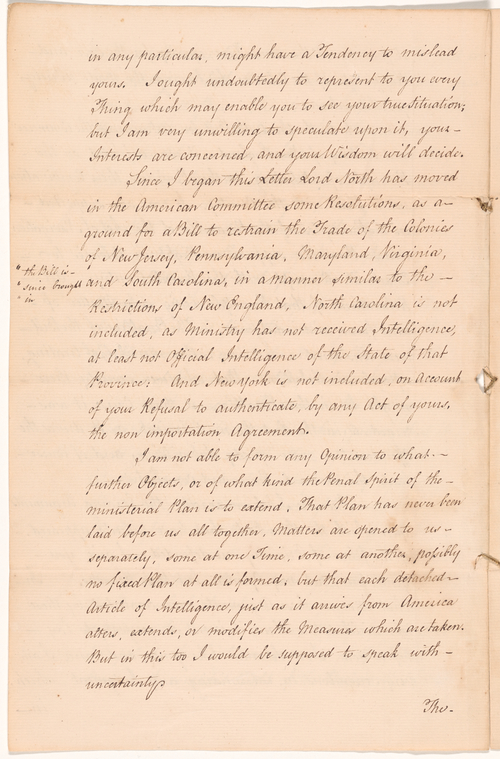 in any particular, might have a Tendency to mislead
yours. I ought undoubtedly to represent to you every
Thing which may enable you to see your true Situation;
but I am very unwilling to speculate upon it, your -
Interests are concerned, and your Wisdom will decide.
Since I began this Letter Lord North has moved
in the American Committee some Resolutions, as a -
ground for a Bill to restrain the Trade of the Colonies
of New Jersey, Pennsylvania, Maryland, Virginia,
" the Bill is -
" since brought
" in
and South Carolina, in a manner similar to the -
Restrictions of New England, North Carolina is not
included, as Ministry has not received Intelligence,
at least not Official Intelligence of the State of that
Province: And New York is not included, on account
of your Refusal to authenticate, by any Act of yours,
the non importation Agreement.
I am not able to form any Opinion to what -
further Objects, or of what kind the Penal Spirit of the -
ministerial Plan is to extend, That Plan has never been
laid before us all together, Matters are opened to us -
separately, some at one Time, some at another, possibly
no fixed Plan at all is formed, but that each detached -
Article of Intelligence, just as it arrives from America
alters, extends, or modifies the Measures which are taken.
But in this too I would be supposed to speak with -
uncertainty
The -